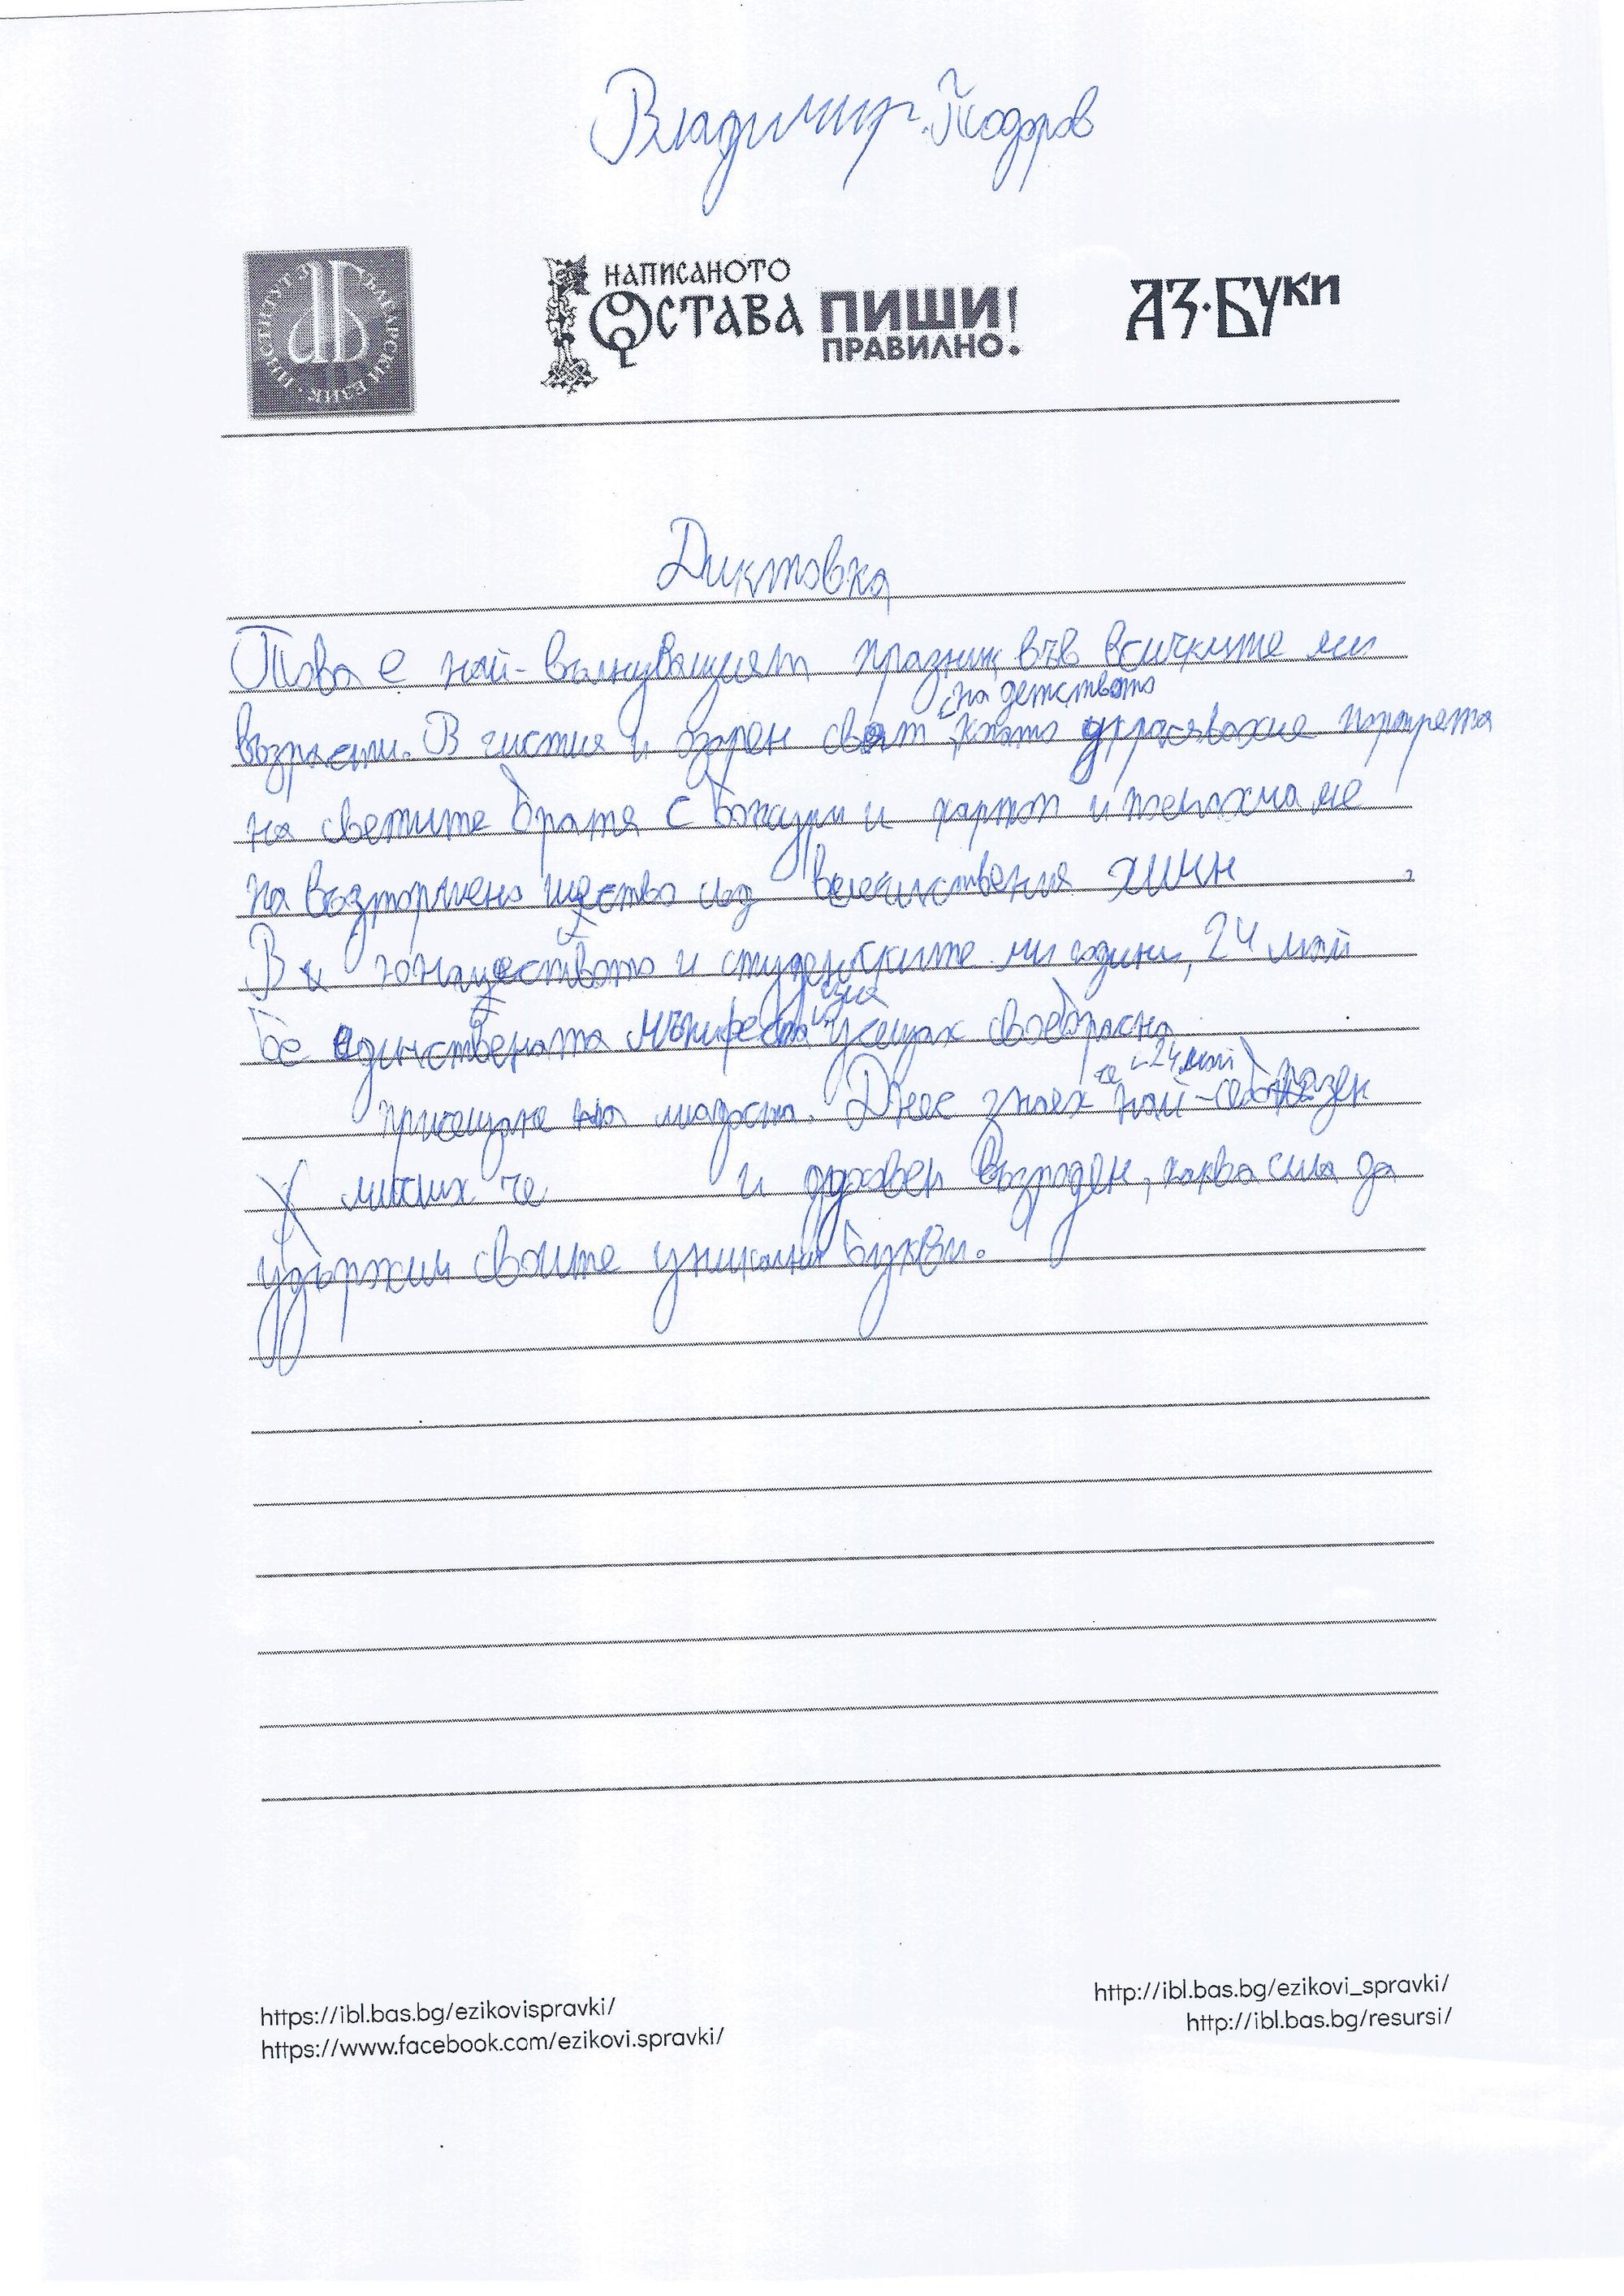 Владимир Тодоров
ИНСТИТУТ ЗА БЪЛГАРСКИ ЕЗИК
НАПИСАНОТО
ОСТАВА
ПИШИ
ПРАВИЛНО!
АЗ·БУКИ
Диктовка
Това е най-вълнуващият празник във всичките ми
на детството
възрасти. В чистия и озарен свят като украсявахме портрета
на светите братя с божури и
на възторжено шествие под величествения химн ,
В юношеството и студентските ми години, 24 май
бе единствената усещах своеобразно
че 24 май
причещане на младост. Днес зная най-
мисих че и духовен възроден, каква сила да
удържим своите уникални букви.
https://ibl.bas.bg/ezikovispravki/
https://www.facebook.com/ezikovi.spravki/
http://ibl.bas.bg/ezikovi_spravki/
http://ibl.bas.bg/resursi/